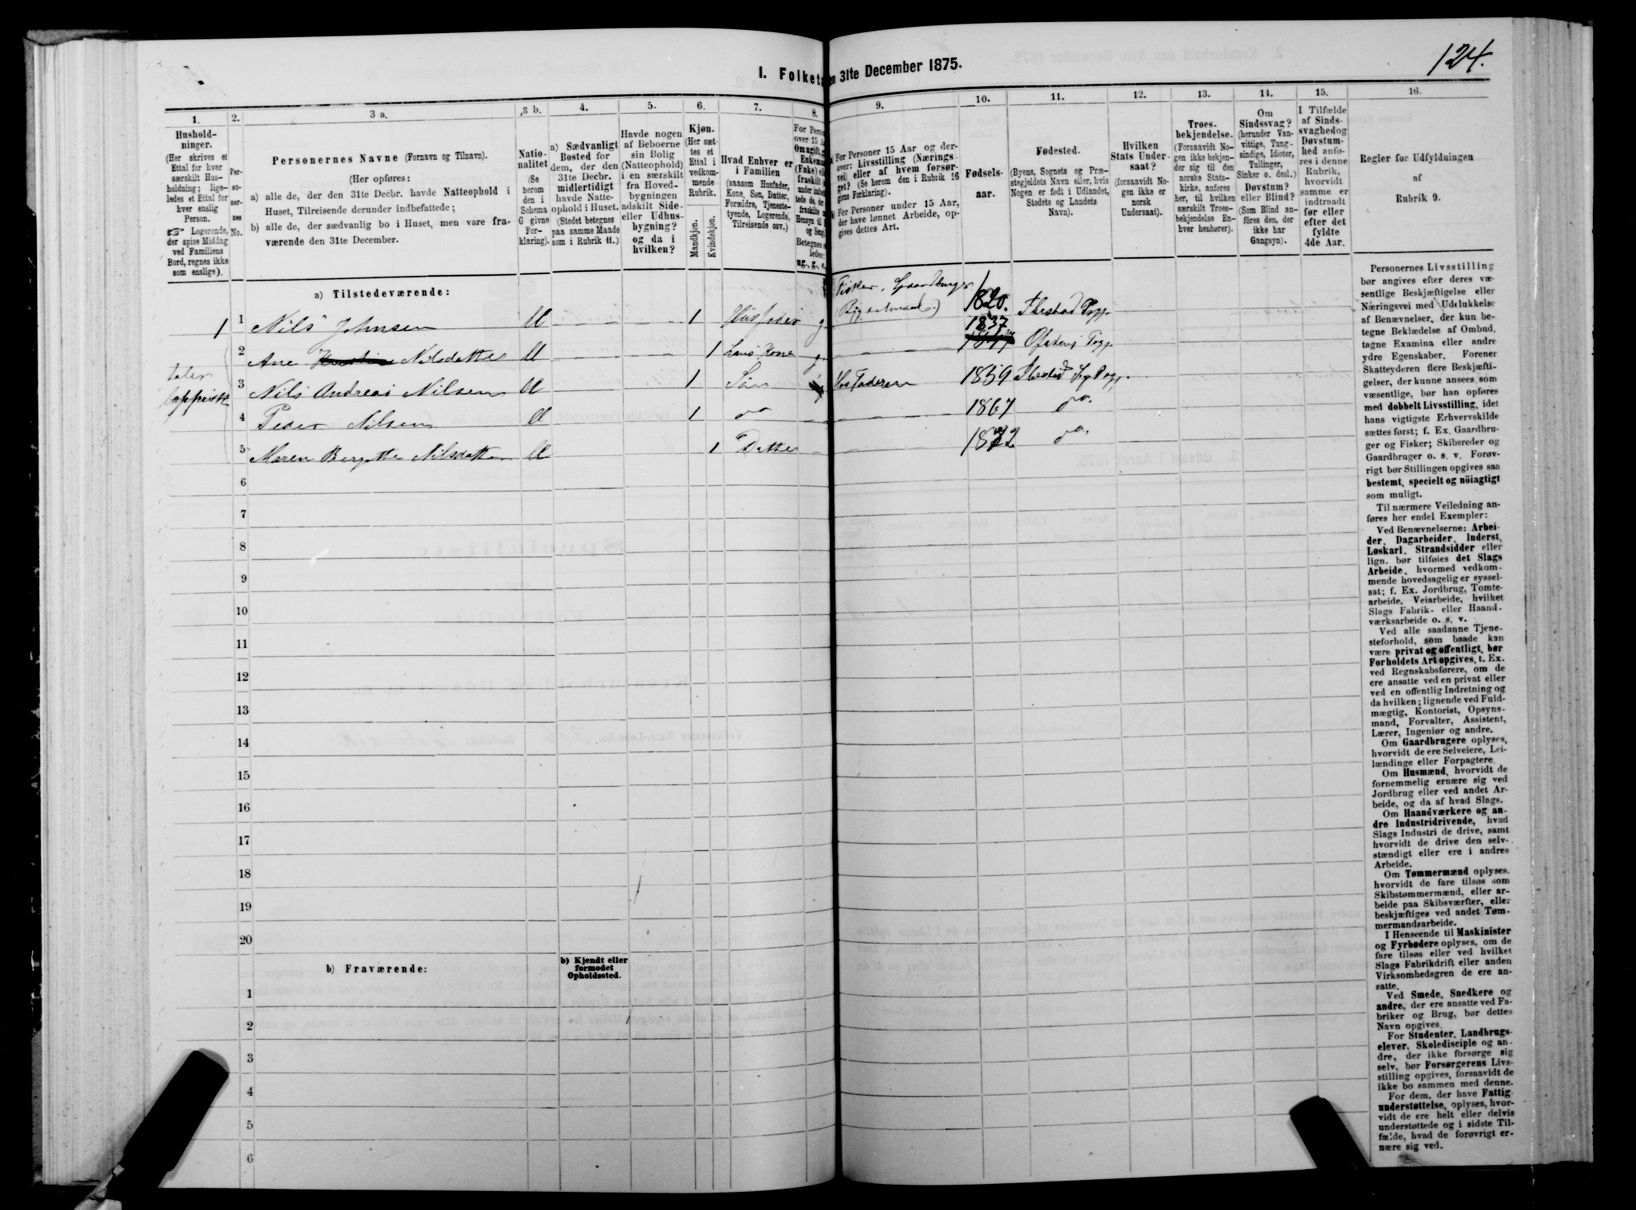 124.
I. Folket
en 31te December 1875.
1.
Hushold-
ninger.
(Her skrives et
Ettal for hver
særskilt Hus-
holdning; lige-
ledes et Ettal for
hver enslig
Person.
☞ Logerende,
der spise Middag
ved Familiens
Bord, regnes ikke
som enslige).
2.
Per-
so-
ner-
nes
No.
3 a.
Personernes Navne (Fornavn og Tilnavn).
(Her opføres:
a) alle de, der den 31te Decbr. havde Natteophold i
Huset, Tilreisende derunder indbefattede;
b) alle de, der sædvanlig bo i Huset, men vare fra-
værende den 31te December.
3 b.
Natio-
nalitet
(Se
herom
den i
Schema
6 givne
For-
klaring).
4.
a) Sædvanligt
Bosted for
dem, der den
31te Decbr.
midlertidigt
havde Natte-
ophold i Huset.
(Stedet betegnes
paa samme Maade
som i Rubrik 11.)
5.
Havde nogen
af Beboerne
sin Bolig
(Natteophold)
i en særskilt
fra Hoved-
bygningen
adskilt Side-
eller Udhus-
bygning?
og da i
hvilken?
6.
Kjøn.
(Her sæt-
tes et
Ettal i
vedkom-
mende
Rubrik.
Mandkjøn.
Kvindekjøn.
7.
Hvad Enhver er
i Familien
(saasom Husfader,
Kone, Søn, Datter,
Forældre, Tjeneste-
tyende, Logerende,
Tilreisende osv.)
8.
9.
For Personer 15 Aar og der-
over: Livsstilling (Nærings-
vei) eller af hvem forsør-
get? (Se herom den i Rubrik 16
givne Forklaring).
For Personer under 15 Aar,
der have lønnet Arbeide, op-
gives dettes Art.
10.
Fødsels-
aar.
11.
Fødested.
(Byens, Sognets og Præ-
stegjeldets Navn eller, hvis
Nogen er født i Udlandet,
Stedets og Landets
Navn).
12.
Hvilken
Stats Under-
saat?
(forsaavidt No-
gen ikke er
norsk
Undersaat).
13.
Troes-
bekjendelse.
(Forsaavidt No-
gen ikke bekjen-
der sig til den
norske Stats-
kirke, anføres
her, til hvilken
særskilt Troes-
bekjendelse En-
hver henhører).
14.
Om
Sindssvag?
(herunder Van-
vittige, Tung-
sindige, Idioter,
Tullinger,
Sinker o. desl.)
Døvstum?
eller Blind?
(Som Blind an-
føres den, der
ikke har
Gangsyn).
15.
I Tilfælde
af Sinds-
svaghed og
Døvstum-
hed anfø-
res i denne
Rubrik,
hvorvidt
samme er
indtraadt
før eller
efter det
fyldte
4de Aar.
16.
Regler for Udfyldningen
af
Rubrik 9.
a) Tilstedeværende:
1 1 Nils Johnsen U 1 Husfader g Fisker, Gaardbruger 1820. Ibestad Pgj.
2 Ane Nilsdatter U 1 Hans Kone g 1837 Ofotens Pgj.
taler
lappisk
3 Nils Andreas Nilsen U 1 Søn Hos Faderen 1859 Ibestad Pgj.
4 Peder Nilsen U 1 do 1867 do.
5 Maren Bergitte Nilsdatter U 1 Datter 1872 do.
6
7
8
9
10
11
12
13
14
15
16
17
18
19
20
b) Fraværende:
b) Kjendt eller
formodet
Opholdssted.
1
2
3
4
5
6
Personernes Livsstilling
bør angives efter deres væ-
sentlige Beskjæftigelse eller
Næringsvei med Udelukkelse
af Benævnelser, der kun be-
tegne Beklædelse af Ombud,
tagne Examina eller andre
ydre Egenskaber. Forener
Skatteyderen flere Beskjæfti-
gelser, der kunne ansees som
væsentlige, bør han opføres
med dobbelt Livsstilling, idet
hans vigtigste Erhvervskilde
sættes først; f. Ex. Gaardbru-
ger og Fisker; Skibsreder og
Gaardbruger o. s. v. Forøv-
rigt bør Stillingen opgives saa
bestemt, specielt og nöiagtigt
som muligt.
Til nærmere Veiledning an-
føres her endel Exempler:
Ved Benævnelserne: Arbei-
der, Dagarbeider, Inderst,
Løskarl, Strandsidder eller
lign. bør tilføies det Slags
Arbeide, hvormed vedkom-
mende hovedsagelig er syssel-
sat; f. Ex. Jordbrug, Tomte-
arbeide, Veiarbeide, hvilket
Slags Fabrik- eller Haand-
værksarbeide o. s. v.
Ved alle saadanne Tjene-
steforhold, som baade kan
være privat og offentligt, bør
Forholdets Art opgives, t. Ex.
ved Regnskabsførere, om de
ere ansatte ved en privat eller
ved en offentlig Indretning og
da hvilken; lignende ved Fuld-
mægtig, Kontorist, Opsyns-
mand, Forvalter, Assistent,
Lærer, Ingeniør og andre.
Om Gaardbrugere oplyses,
hvorvidt de ere Selveiere, Lei-
lændinge eller Forpagtere.
Om Husmænd, hvorvidt de
fornemmelig ernære sig ved
Jordbrug eller ved andet Ar-
beide, og da af hvad Slags.
Om Haandværkere og an-
dre Industridrivende, hvad
Slags Industri de drive, samt
hvorvidt de drive den selv-
stændigt eller ere i andres
Arbeide.
Om Tømmermænd oplyses,
hvorvidt de fare tilsøs som
Skibstømmermænd, eller ar-
beide paa Skibsværfter, eller
beskjæftiges ved andet Tøm-
mermandsarbeide.
I Henseende til Maskinister
og Fyrbødere oplyses, om de
fare tilsøs eller ved hvilket
Slags Fabrikdrift eller anden
Virksomhedsgren de ere an-
satte.
Ved Smede, Snedkere og
andre, der ere ansatte ved Fa-
briker og Brug, bør dettes
Navn opgives.
For Studenter, Landbrugs-
elever, Skoledisciple og an-
dre, der ikke forsørge sig
selv, bør Forsørgerens Livs-
stilling opgives, forsaavidt de
ikke bo sammen med denne.
For dem, der have Fattig-
understøttelse, oplyses, hvor-
vidt de ere helt eller delvis
understøttede og i sidste Til-
fælde, hvad de forøvrigt er-
nære sig ved.